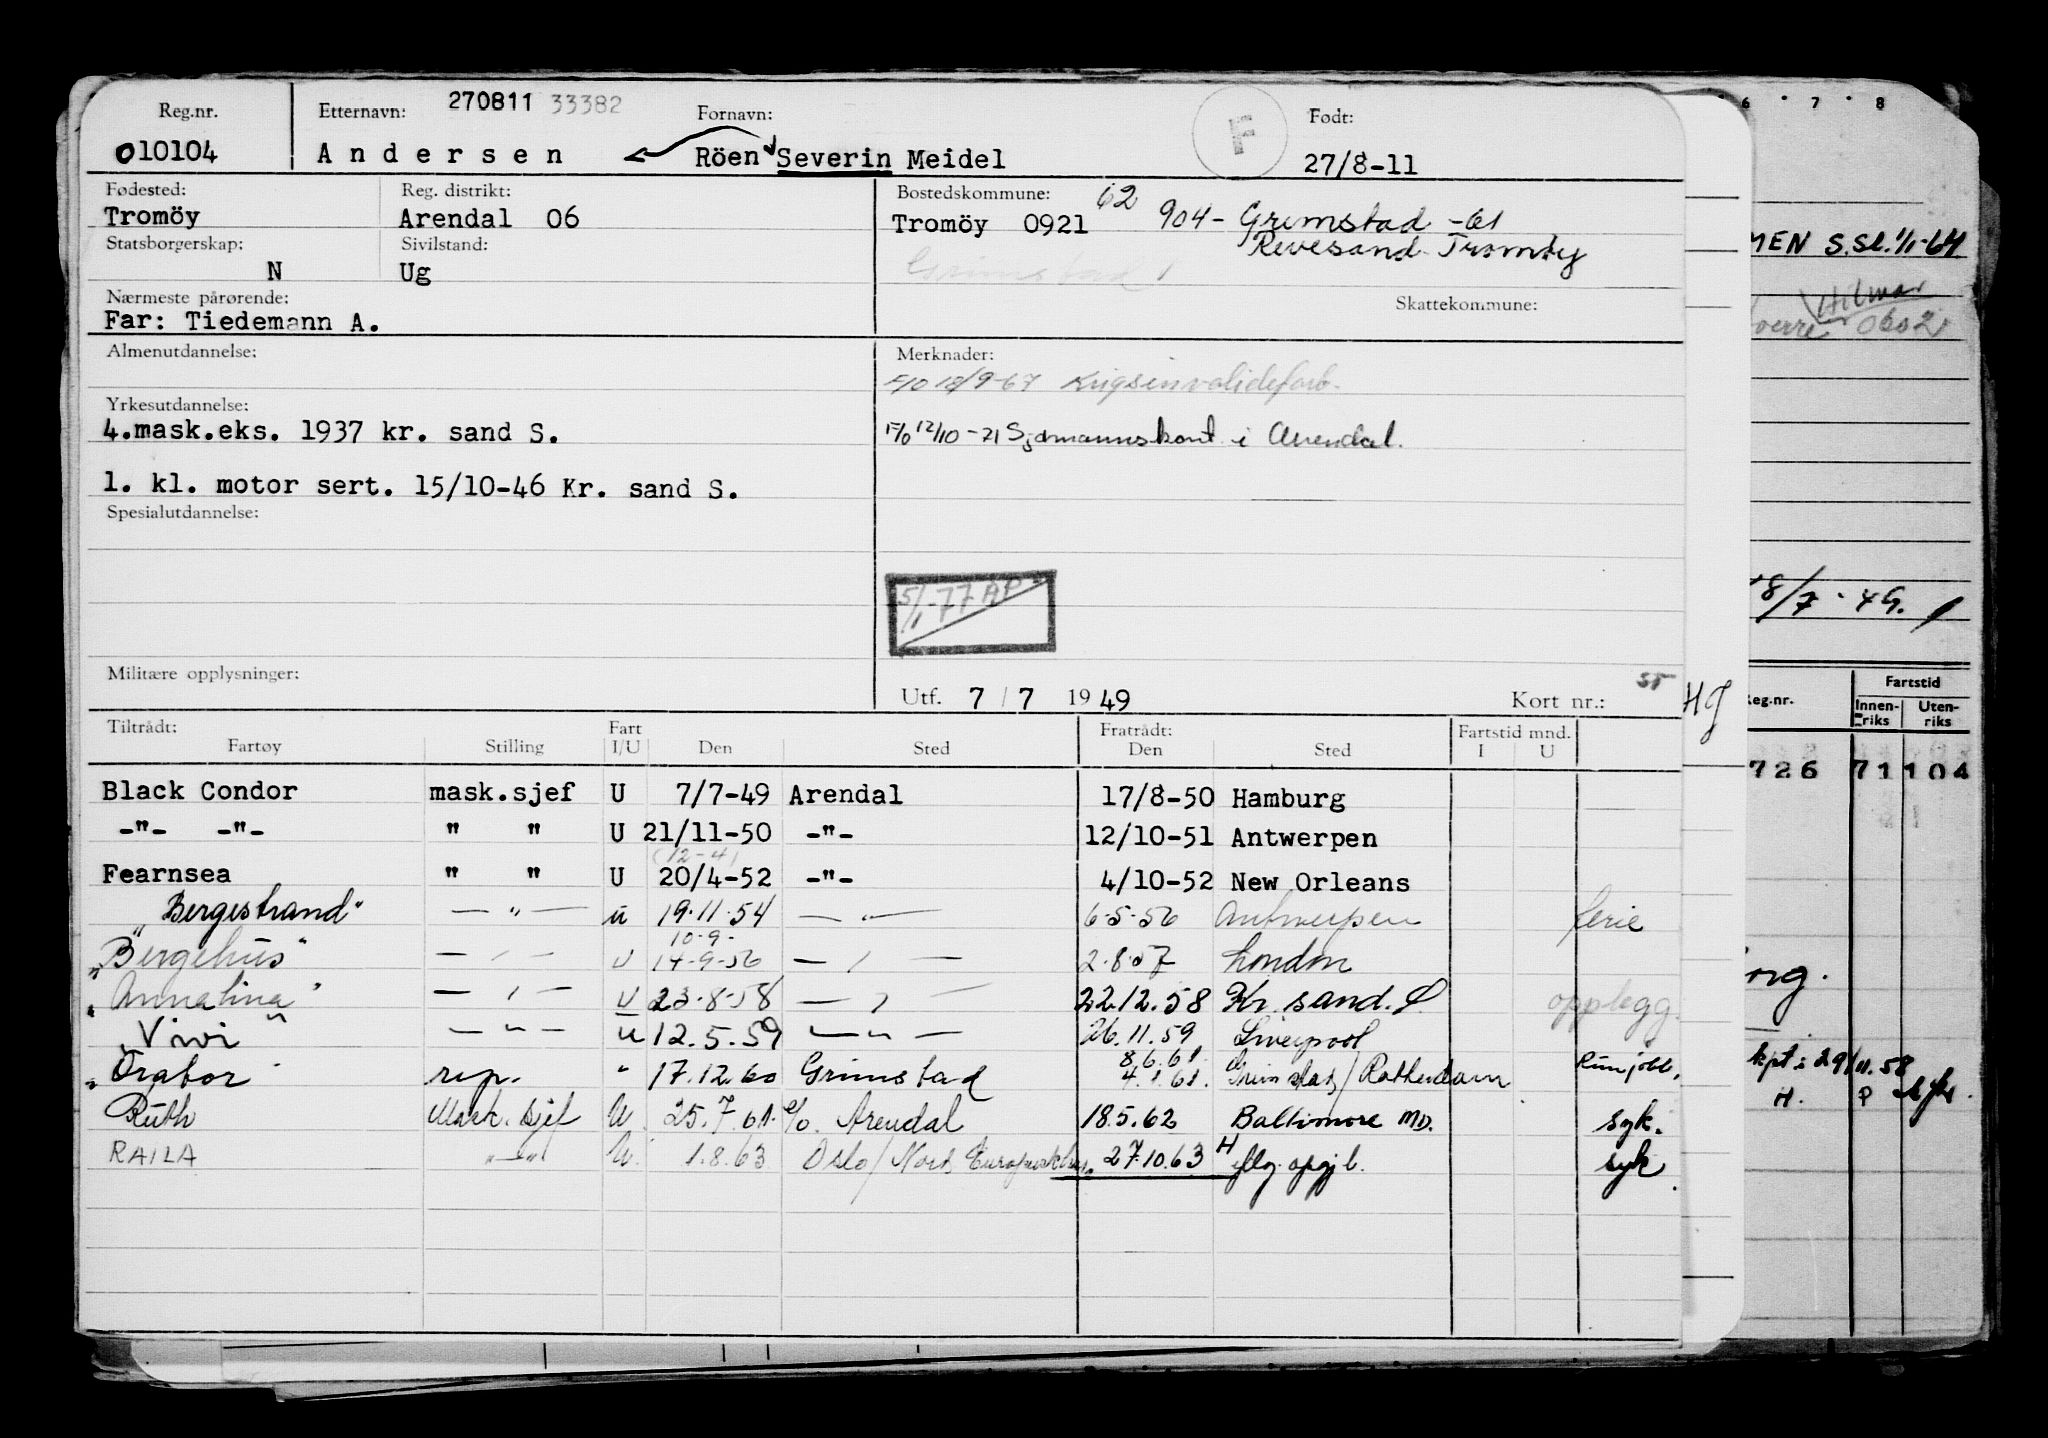 Reg.nr. Etternavn: 270811 33382 Fornavn: F Født:
010104 Andersen Röen Severin Meidel 27/8-11
Fødested: Reg. distrikt: Bostedskommune: 62
Tromöy Arendal 06 Tromöy 0921 904- Grimstad -61
Revesand Tromöy
Statsborgerskap: Sivilstand:
N Ug Grimstad
Nærmeste pårørende: Skattekommune:
Far: Tiedemann A.
Almenutdannelse: Merknader:
F/O 18/9-67 Krigsinvalideforb.
Yrkesutdannelse:
4.mask.eks. 1937 kr. sand S. F/O 12/10-71 Sjømannskont i Arendal.
1. kl. motor sert. 15/10-46 Kr. sand S.
Spesialutdannelse:
5/1-77 AP
Militære opplysninger:
Utf. 7/7 1949 Kort nr.:
Tiltrådt: Fart Fratrådt: Fartstid mnd.
Fartøy Stilling I/U Den Sted Den Sted I U
Black Condor mask.sjef U 7/7-49 Arendal 17/8-50 Hamburg
-"- -"- " " U 21/11-50 -"- 12/10-51 Antwerpen
(12-4)
Fearnsea " " U 20/4-52 -"- 4/10-52 New Orleans
"Bergestrand" -"- u 19.11.54 -"- 6-5-56 Antwerpen ferie
10-9-
"Bergehus" -"- U 14-9-56 -"- 2.8.57 London
"Annalina" -"- U 23-8-58 -"- 22.12.58 Kr. sand. S. opplegg.
"Vivi" -"- u 12.5.59 -"- 26.11.59 Liverpool
8.6.61.
"Orabor" rep. " 17.12.60 Grimstad 4.1.61. Grimstad/Rotterdam
Ruth Mask. sjef U. 25.7.61. c/o. Arendal 18.5.62 Baltimore MD. syk.
RAILA "-" U. 1.8.63 Oslo/Nord 27.10.63 H syk
6 7 8
MEN S.Sl. 1/1-64
Hilmar
0602
18/7-49.
HJ
Reg.nr. Fartstid
Innenriks Utenriks
726 71 104
org.
kpt: 29/11.58
H. P